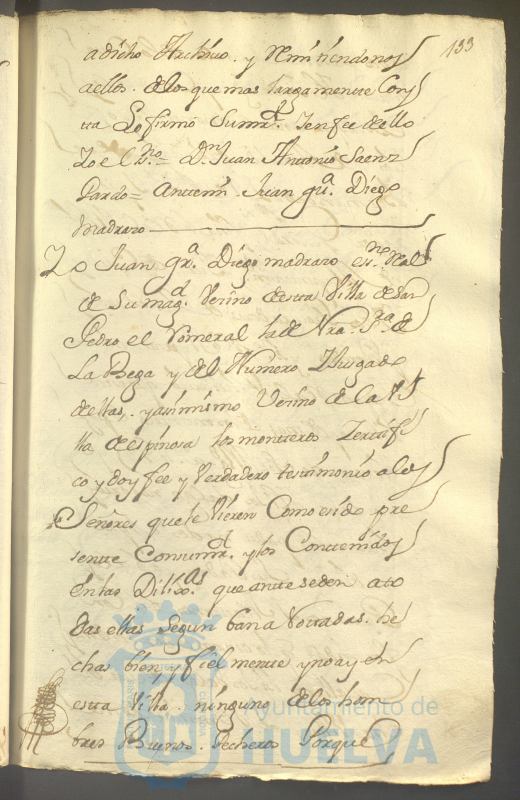 133
adicho Archivo. y Remitiendonos
aellos. delos que mas largamente Cons
ta Lo firmo Sumrd. Ienfee dello
Io el Sno= Dn Juan Antonio Saenz
Pardo= Antemi Juan gra. Diego
Madrazo
Io Juan gra. Diego madrazo esno Real
de Sumagd. Vezino desta Villa de San
Pedro el Romeral la de Nra. Sra. de
La Bega y del Numero I Juzgado
dellas, y asimismo Vezino de la Vi
lla de espinosa los monteros Zertifi
co y doy fee y Verdadero testimonio alos
Señores quele Vieren Como esido pre
sente Consumrd. y los Contenidos
En las Dilixas. que anteseden ato
das ellas Segun ban a Notadas. he
chas bien y fielmente y no ay en
esta Villa. ninguno delos hom
bres Buenos. Pecheros Porque
Ayuntamiento de
HUELVA